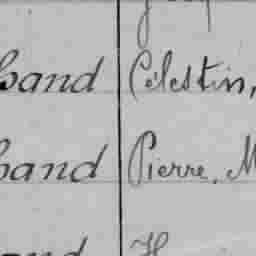 band Célestin,
band Pierre, M